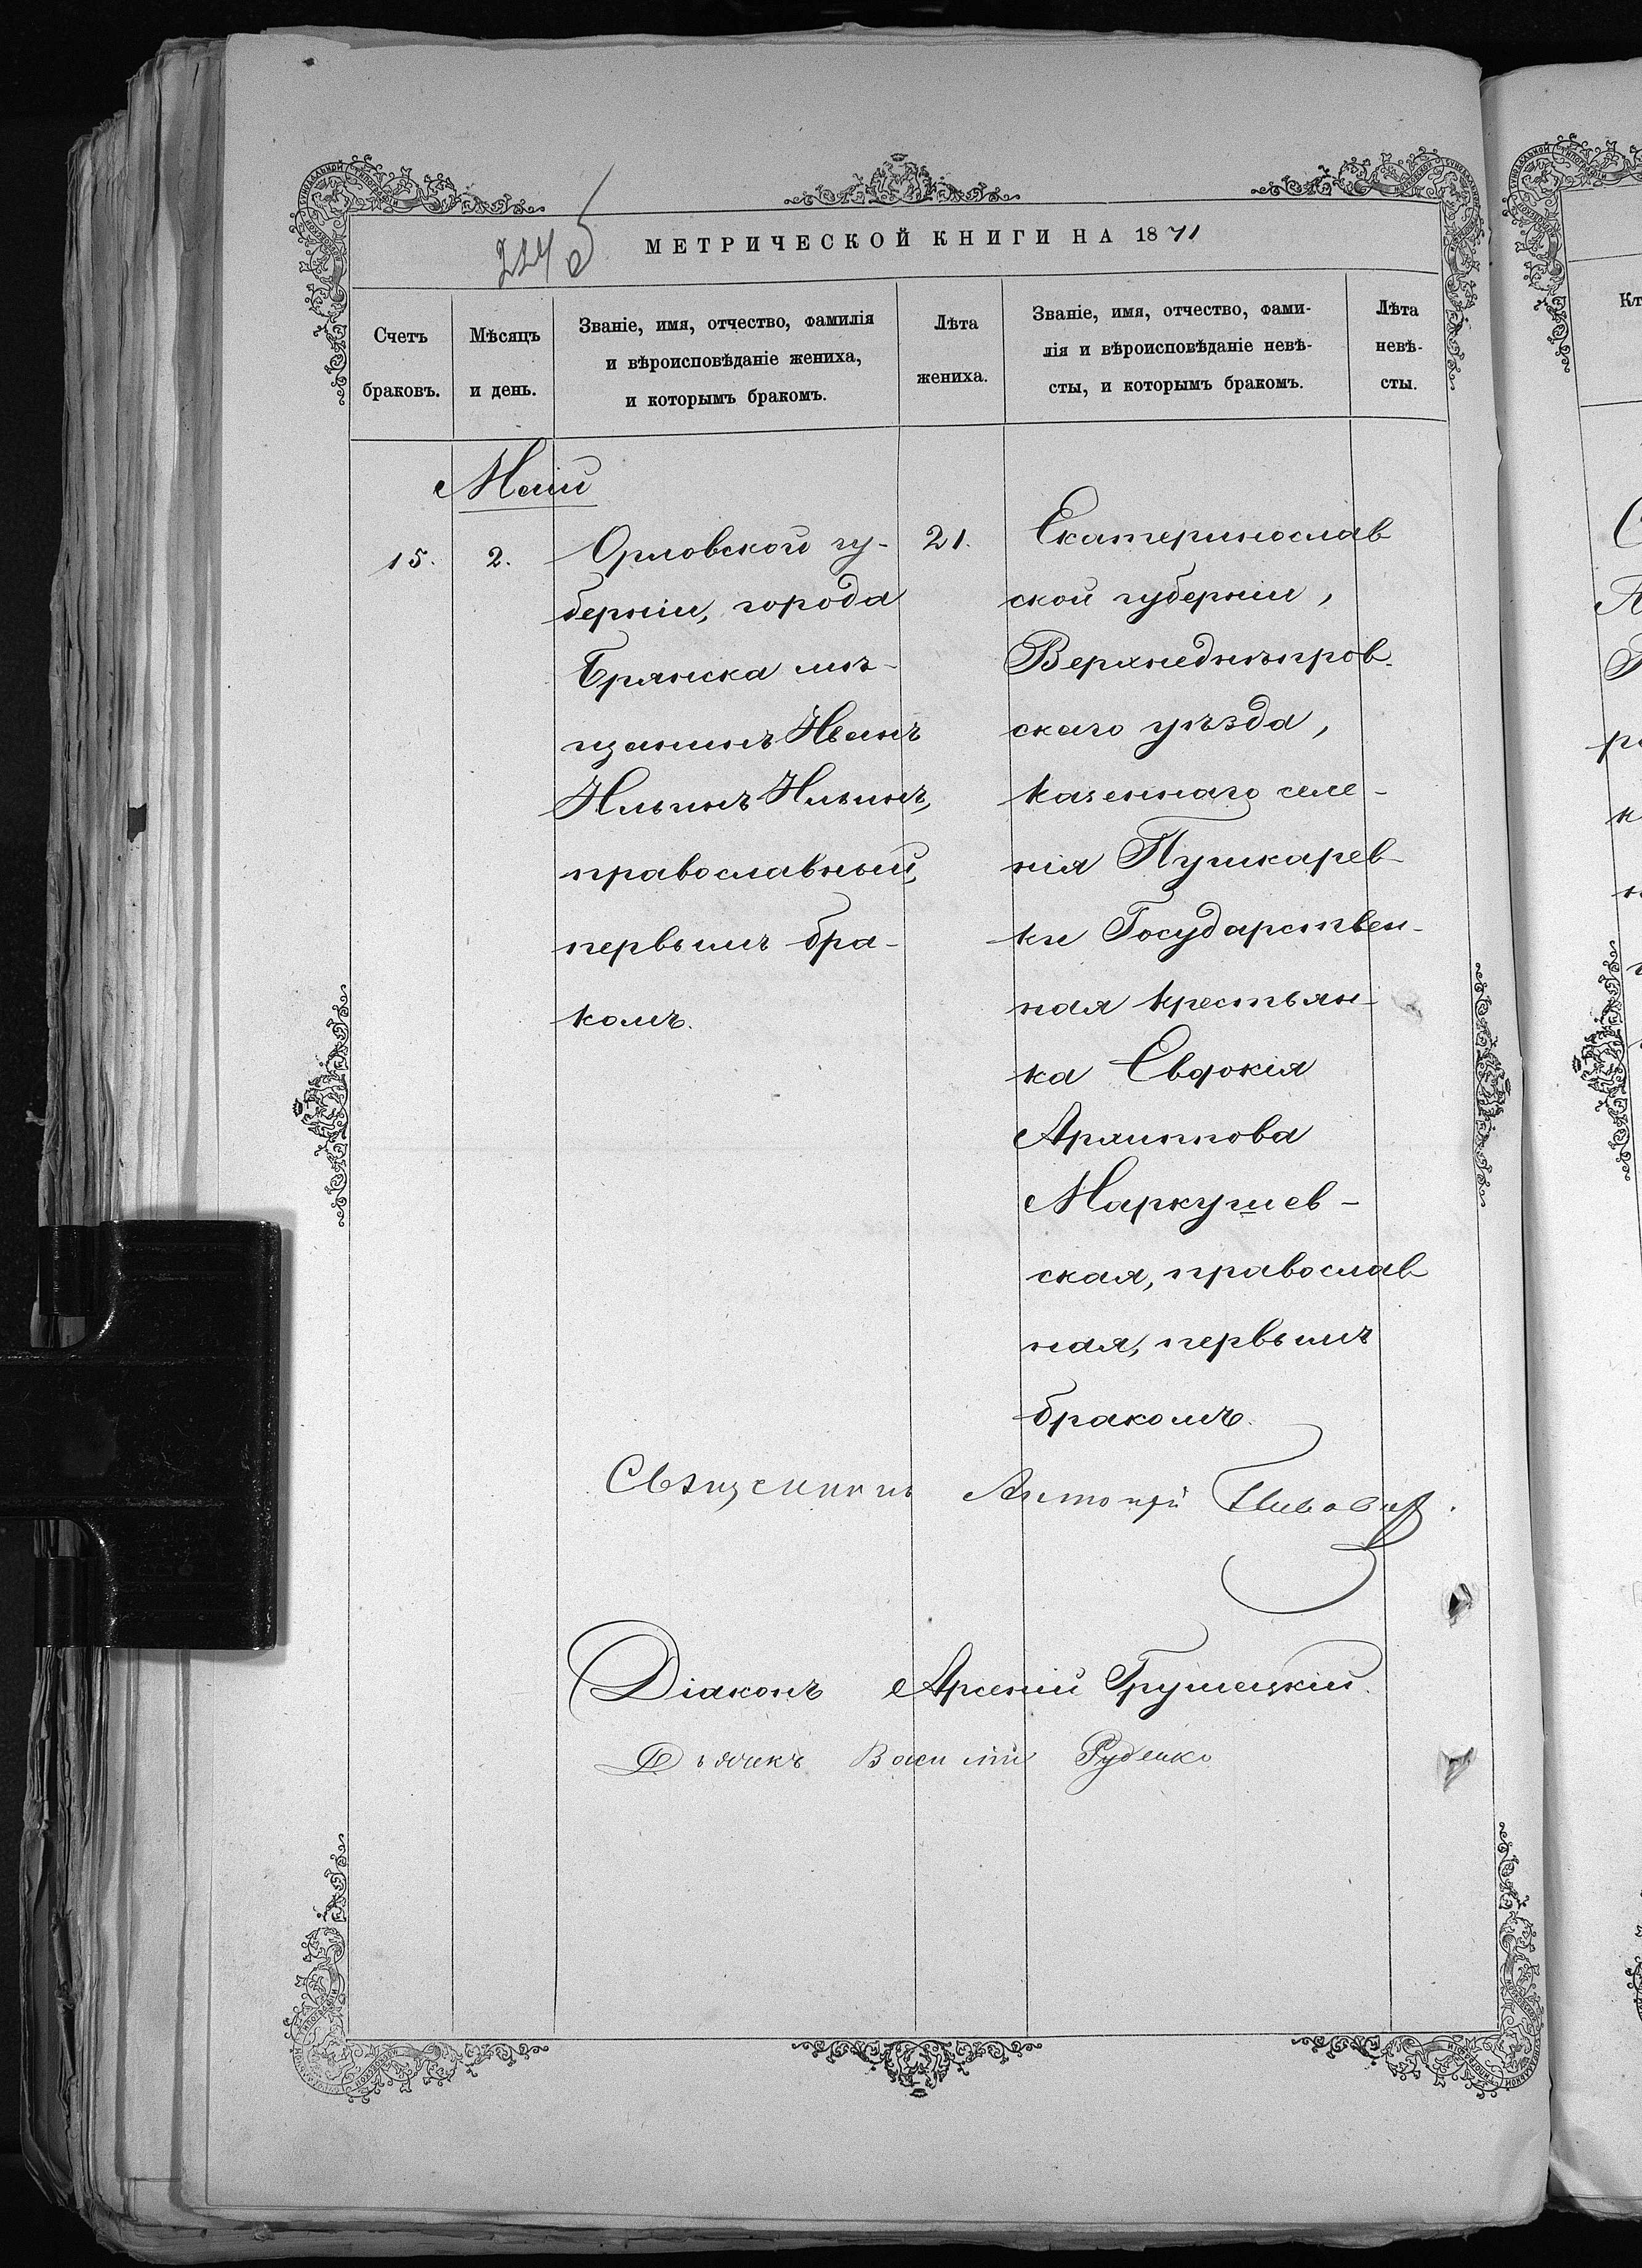 МЕТРИЧЕСКОЙ КНИГИ НА 1871
Счетъ браковъ.
Мѣсяцъ и день.
Званіе, имя, отчество, фамилія
и вѣроисповѣданіе жениха,
и которымъ бракомъ.
Лѣта жениха.
Званіе, имя, отчество, фами-
лія и вѣроисповѣданіе невѣ-
сты, и которымъ бракомъ.
Лѣта невѣ-
сты.
Маій
15.
2.
Орловской гу-
берніи, города
Брянска мѣ-
щанинъ Иванъ
Ильинъ Ильинъ,
православный,
первымъ бра-
комъ.
21.
Екатеринослав
ской губерніи,
Верхнеднѣпров-
скаго уѣзда,
казеннаго селе-
нія Пушкарев-
ки Государствен-
ная крестьян-
ка Евдокія
Маркушев-
ская, православ
ная, первымъ
бракомъ.
Священникъ Антоній
Діаконъ Арсеній Грушецкій.
Дьячекъ Василій Руденко